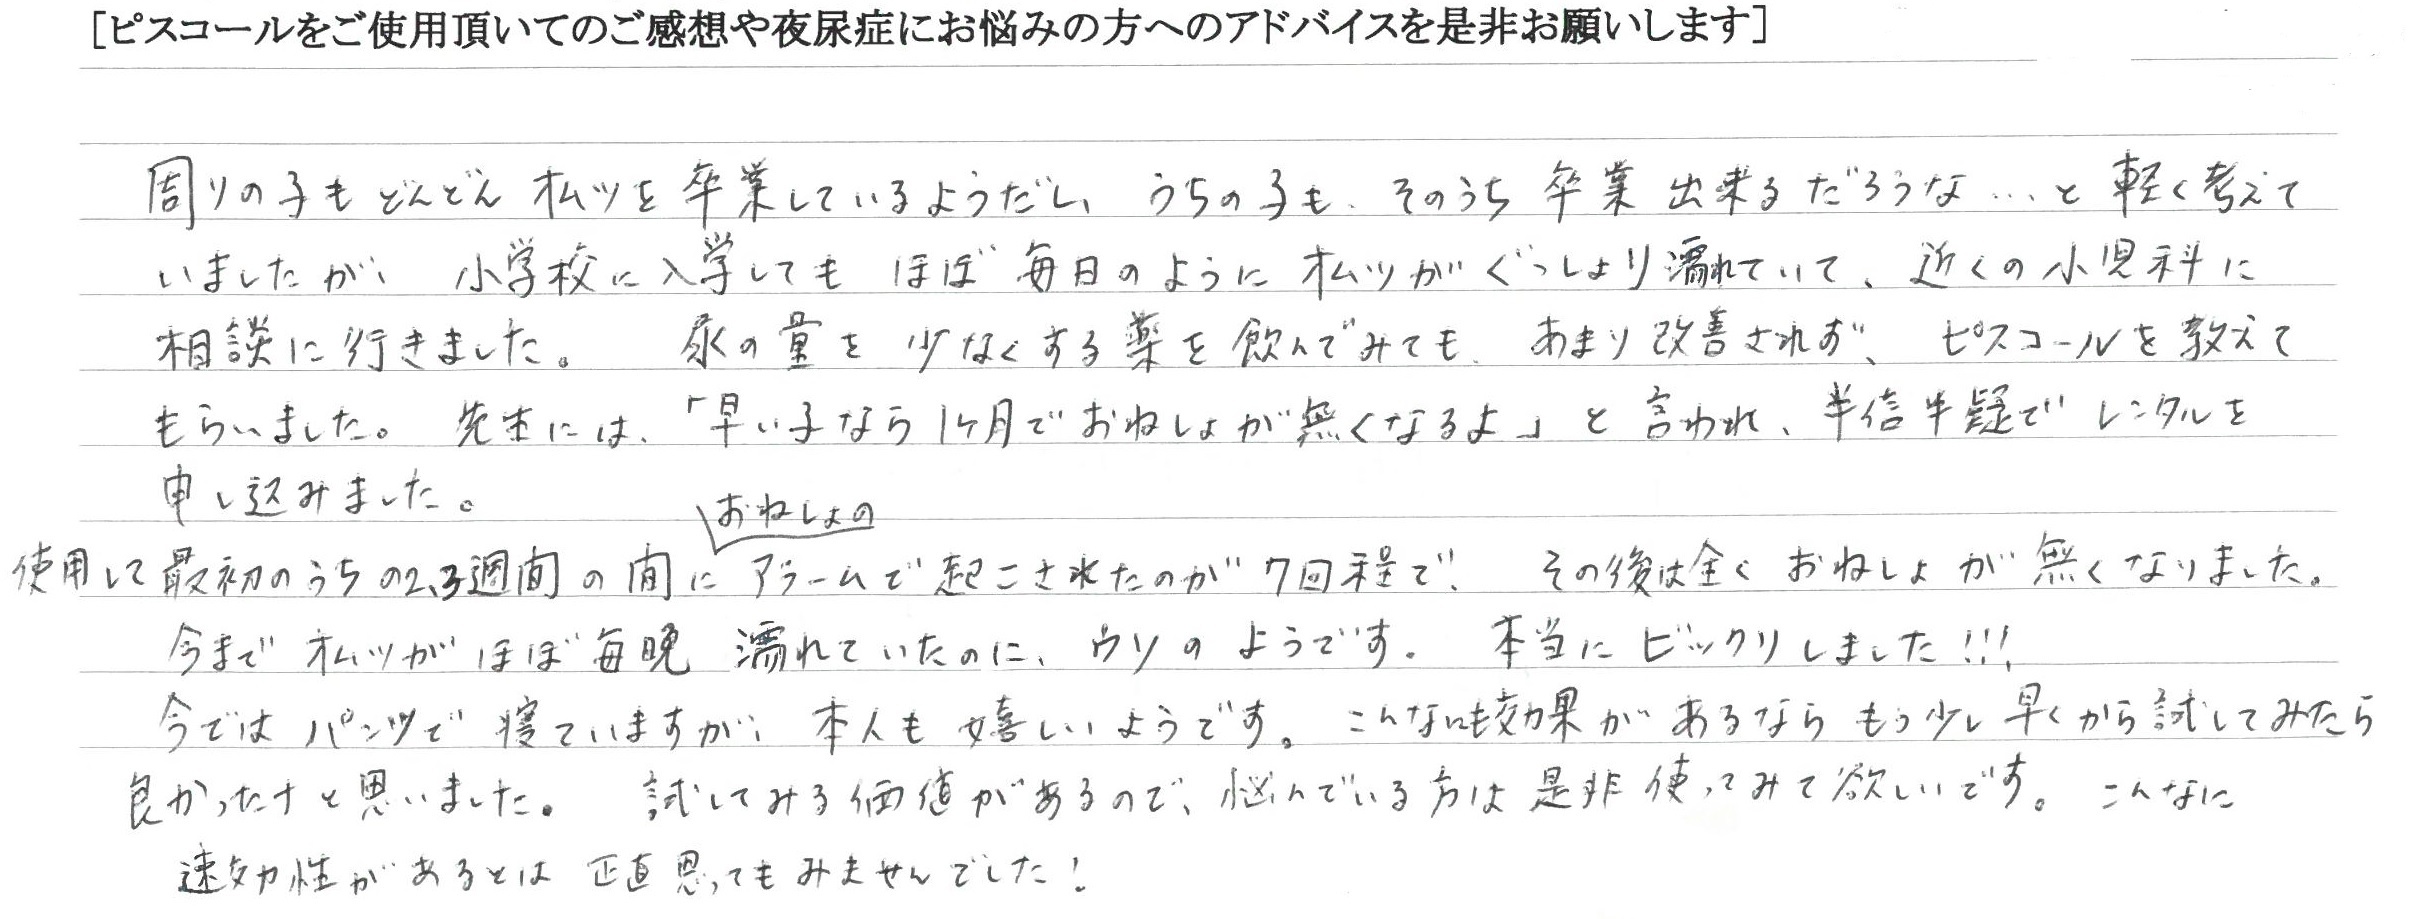 [ピスコールをご使用頂いてのご感想や夜尿症にお悩みの方へのアドバイスを是非お願いします]
周りの子もどんどんオムツを卒業しているようだし、うちの子も、そのうち卒業出来るだろうな…と軽く考えて
いましたが、小学校に入学してもほぼ毎日のようにオムツがぐっしょり濡れていて、近くの小児科に
相談に行きました。尿の量を少なくする薬を飲んでみても、あまり改善されず、ピスコールを教えて
もらいました。先生には、「早い子なら1ヶ月でおねしょが無くなるよ」と言われ、半信半疑でレンタルを
申し込みました。
おねしょの
使用して最初のうちの2、3週間の間にアラームで起こされたのが7回程で、その後は全くおねしょが無くなりました。
今までオムツがほぼ毎晩濡れていたのに、ウソのようです。本当にビックリしました!!!
今ではパンツで寝ていますが、本人も嬉しいようです。こんなにも効果があるならもう少し早くから試してみたら
良かったナと思いました。試してみる価値があるので、悩んでいる方は是非使ってみて欲しいです。こんなに
速効性があるとは正直思ってもみませんでした!